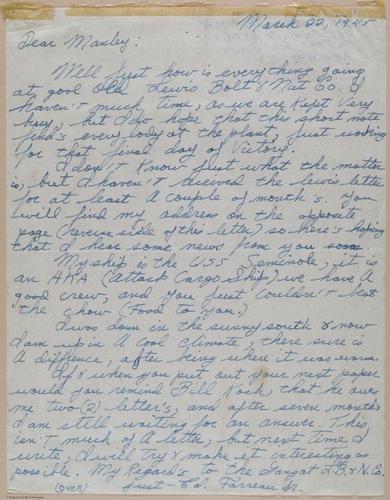 March 22, 1945
Dear Manley:
Well just how is everything going
at good old Lewis Bolt & Nut Co. I
haven't much time, as we are kept very
busy, but I do hope that this short note
find's every body at the plant, just working
for that final day of Victory.
I don't know just what the matter
is, but I haven't received the lewis letter
for at least a couple of mouth's. You
will find my address on the opposite
page (reverse side of this letter) so here's hoping
that I hear some news from you soon.
My ship is the USS Seminole, it is
an AKA (Attack Cargo Ship) we have a
good crew, and you just couldn't beat
the chow (Food to you.)
I was down in the sunny south & now
I am up in a cool climate, there sure is
a difference, after being where it was warm.
If & when you put out your next paper
would you remind Bill Koch, that he owes
me two (2) letter's, and after seven months
I am still waiting for an answer. This
isn't much of a letter, but next time I
write, I will try & make it interesting as
possible. My Regard's to the Gang at L.B. & N. Co.
(over) Just - Ed. Farreau Jr.